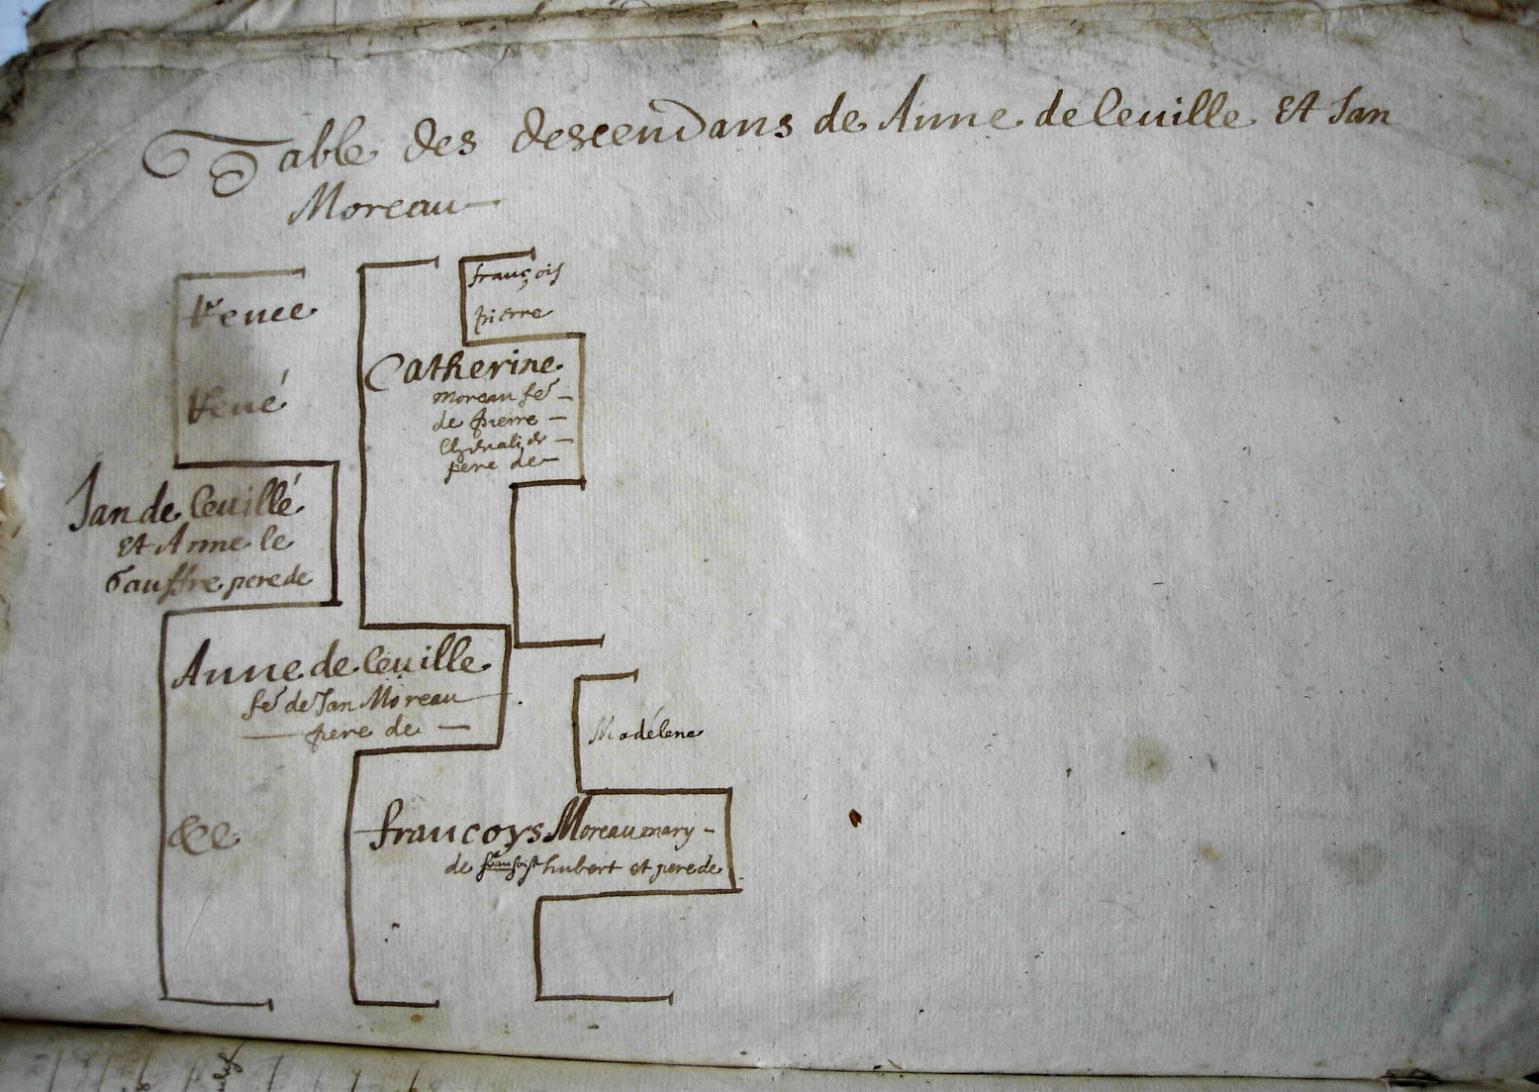 Table des descendans de Anne de leuille et Jan
Moreau
Renee
René
Jan de leuillé
et Anne le
Gauffre pere de
Anne de leuille
fe de Jan Moreau
pere de
&c
françois
pierre
Catherine
moreau fe
de pierre
pere de
Madélene
francoys Moreau mary
de hubert et pere de